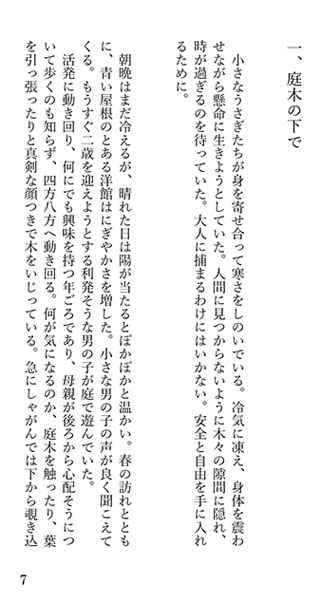 一、庭木の下で
小さなうさぎたちが身を寄せ合って寒さをしのいでいる。冷気に凍え、身体を震わ
せながら懸命に生きようとしていた。人間に見つからないように木々の隙間に隠れ、
時が過ぎるのを待っていた。大人に捕まるわけにはいかない。安全と自由を手に入れ
るために。
朝晩はまだ冷えるが、晴れた日は陽が当たるとぽかぽかと温かい。春の訪れととも
に、青い屋根のとある洋館はにぎやかさを増した。小さな男の子の声が良く聞こえて
くる。もうすぐ二歳を迎えようとする利発そうな男の子が庭で遊んでいた。
活発に動き回り、何にでも興味を持つ年ごろであり、母親が後ろから心配そうにつ
いて歩くのも知らず、四方八方へ動き回る。何が気になるのか、庭木を触ったり、葉
を引っ張ったりと真剣な顔つきで木をいじっている。急にしゃがんでは下から覗き込
7